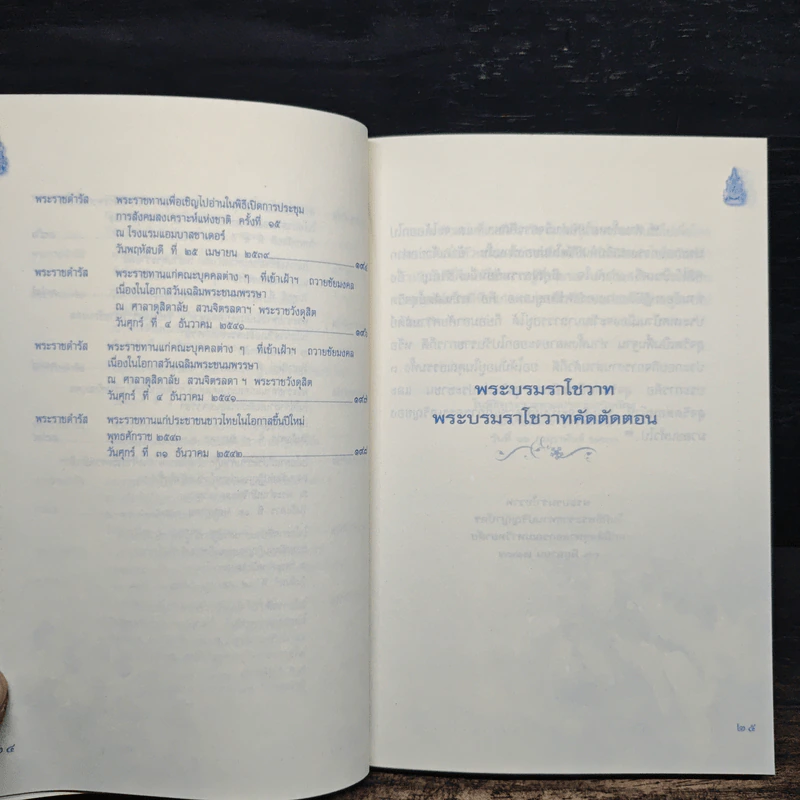 พระราชดำรัส พระราชทานเพื่อเชิญไปอ่านในพิธีเปิดการประชุม
การสังคมสงเคราะห์แห่งชาติ ครั้งที่ ๑๕
ณ โรงแรมแอมบาสซาเดอร์
วันพฤหัสบดี ที่ ๒๕ เมษายน ๒๕๓๙
พระราชดำรัส พระราชทานแก่คณะบุคคลต่าง ๆ ที่เข้าเฝ้าฯ ถวายชัยมงคล
เนื่องในโอกาสวันเฉลิมพระชนมพรรษา
ณ ศาลาดุสิดาลัย สวนจิตรลดาฯ พระราชวังดุสิต
วันศุกร์ ที่ ๔ ธันวาคม ๒๕๔๑
พระราชดำรัส พระราชทานแก่คณะบุคคลต่าง ๆ ที่เข้าเฝ้าฯ ถวายชัยมงคล
เนื่องในโอกาสวันเฉลิมพระชนมพรรษา
ณ ศาลาดุสิดาลัย สวนจิตรลดาฯ พระราชวังดุสิต
วันศุกร์ ที่ ๔ ธันวาคม ๒๕๔๑ ๑๙๗
พระราชดำรัส พระราชทานแก่ประชาชนชาวไทยในโอกาสขึ้นปีใหม่
พุทธศักราช ๒๕๔๓
วันศุกร์ ที่ ๓๑ ธันวาคม ๒๕๔๒ ๑๙๘
พระบรมราโชวาท
พระบรมราโชวาทคัดตัดตอน
๒๕